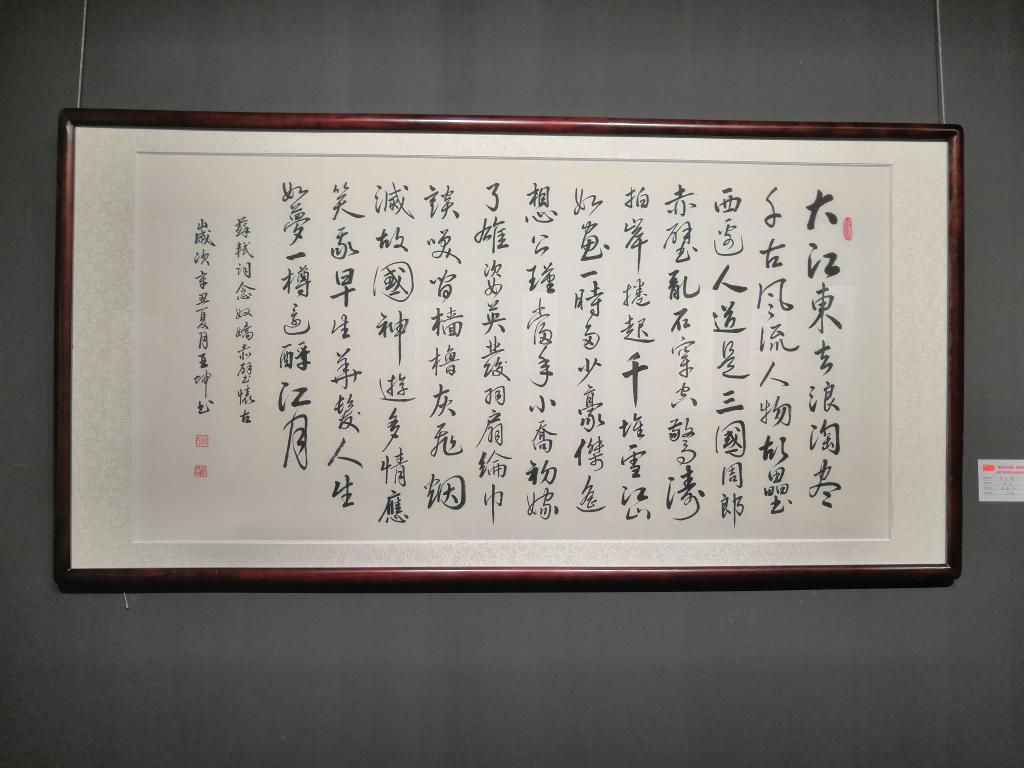 大江東去浪淘盡
千古風流人物故壘
西邊人道是三國周郎
赤壁亂石穿空驚濤
拍岸捲起千堆雪江山
如畫一時多少豪傑遙
想公瑾當年小喬初嫁
了雄姿英發羽扇綸巾
談笑間檣櫓灰飛烟
滅故國神遊多情應
笑我早生華髮人生
如夢一樽還酹江月
蘇軾詞念奴嬌赤壁懷古
歲次辛丑夏月坤書